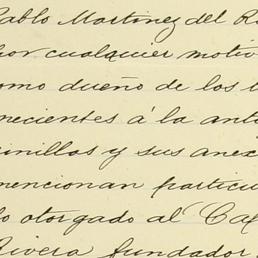 Pablo Martinez del R
por cualquier motiv
como dueño de los t
necientes á la anti
inillas y sus anex
mencionan particu
lo otorgado al Cap
Rivera fundador